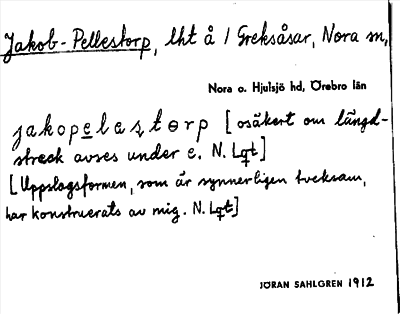 Jakob-Pellestorp, lht å / Greksåsar, Nora sn,
Nora o. Hjulsjö hd, Örebro län
jakopelastɵrp [osäkert om längd-
streck avses under e. N. Lgt]
[Uppslagsformen, som är synnerligen tveksam,
har konstruerats av mig. N. Lgt]
JÖRAN SAHLGREN 1912